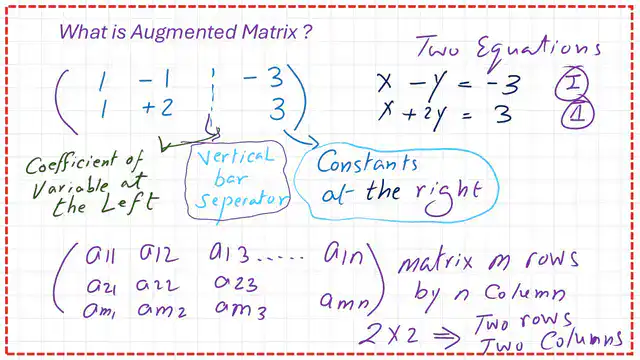 What is Augmented Matrix ?
Two Equations
( 1 -1 ¦ -3 )
( 1 +2 ¦ 3 )
x - y = -3 I
x + 2y = 3
Coefficient of
Variable at
the Left
Vertical
bar
Seperator
Constants
at the right
( a11 a12 a13 ..... a1n )
a21 a22 a23
am1 am2 am3 amn
matrix m rows
by n Column
2 x 2 ⇒ Two rows
Two Columns